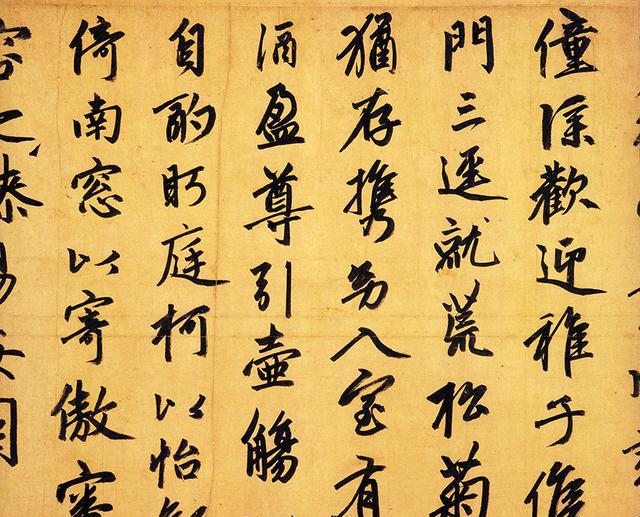 僮僕歡迎稚子候
門三逕就荒松菊
猶存携幼入室有
酒盈尊引壺觴
自酌眄庭柯以怡
倚南窓以寄傲審
容之膝易安園